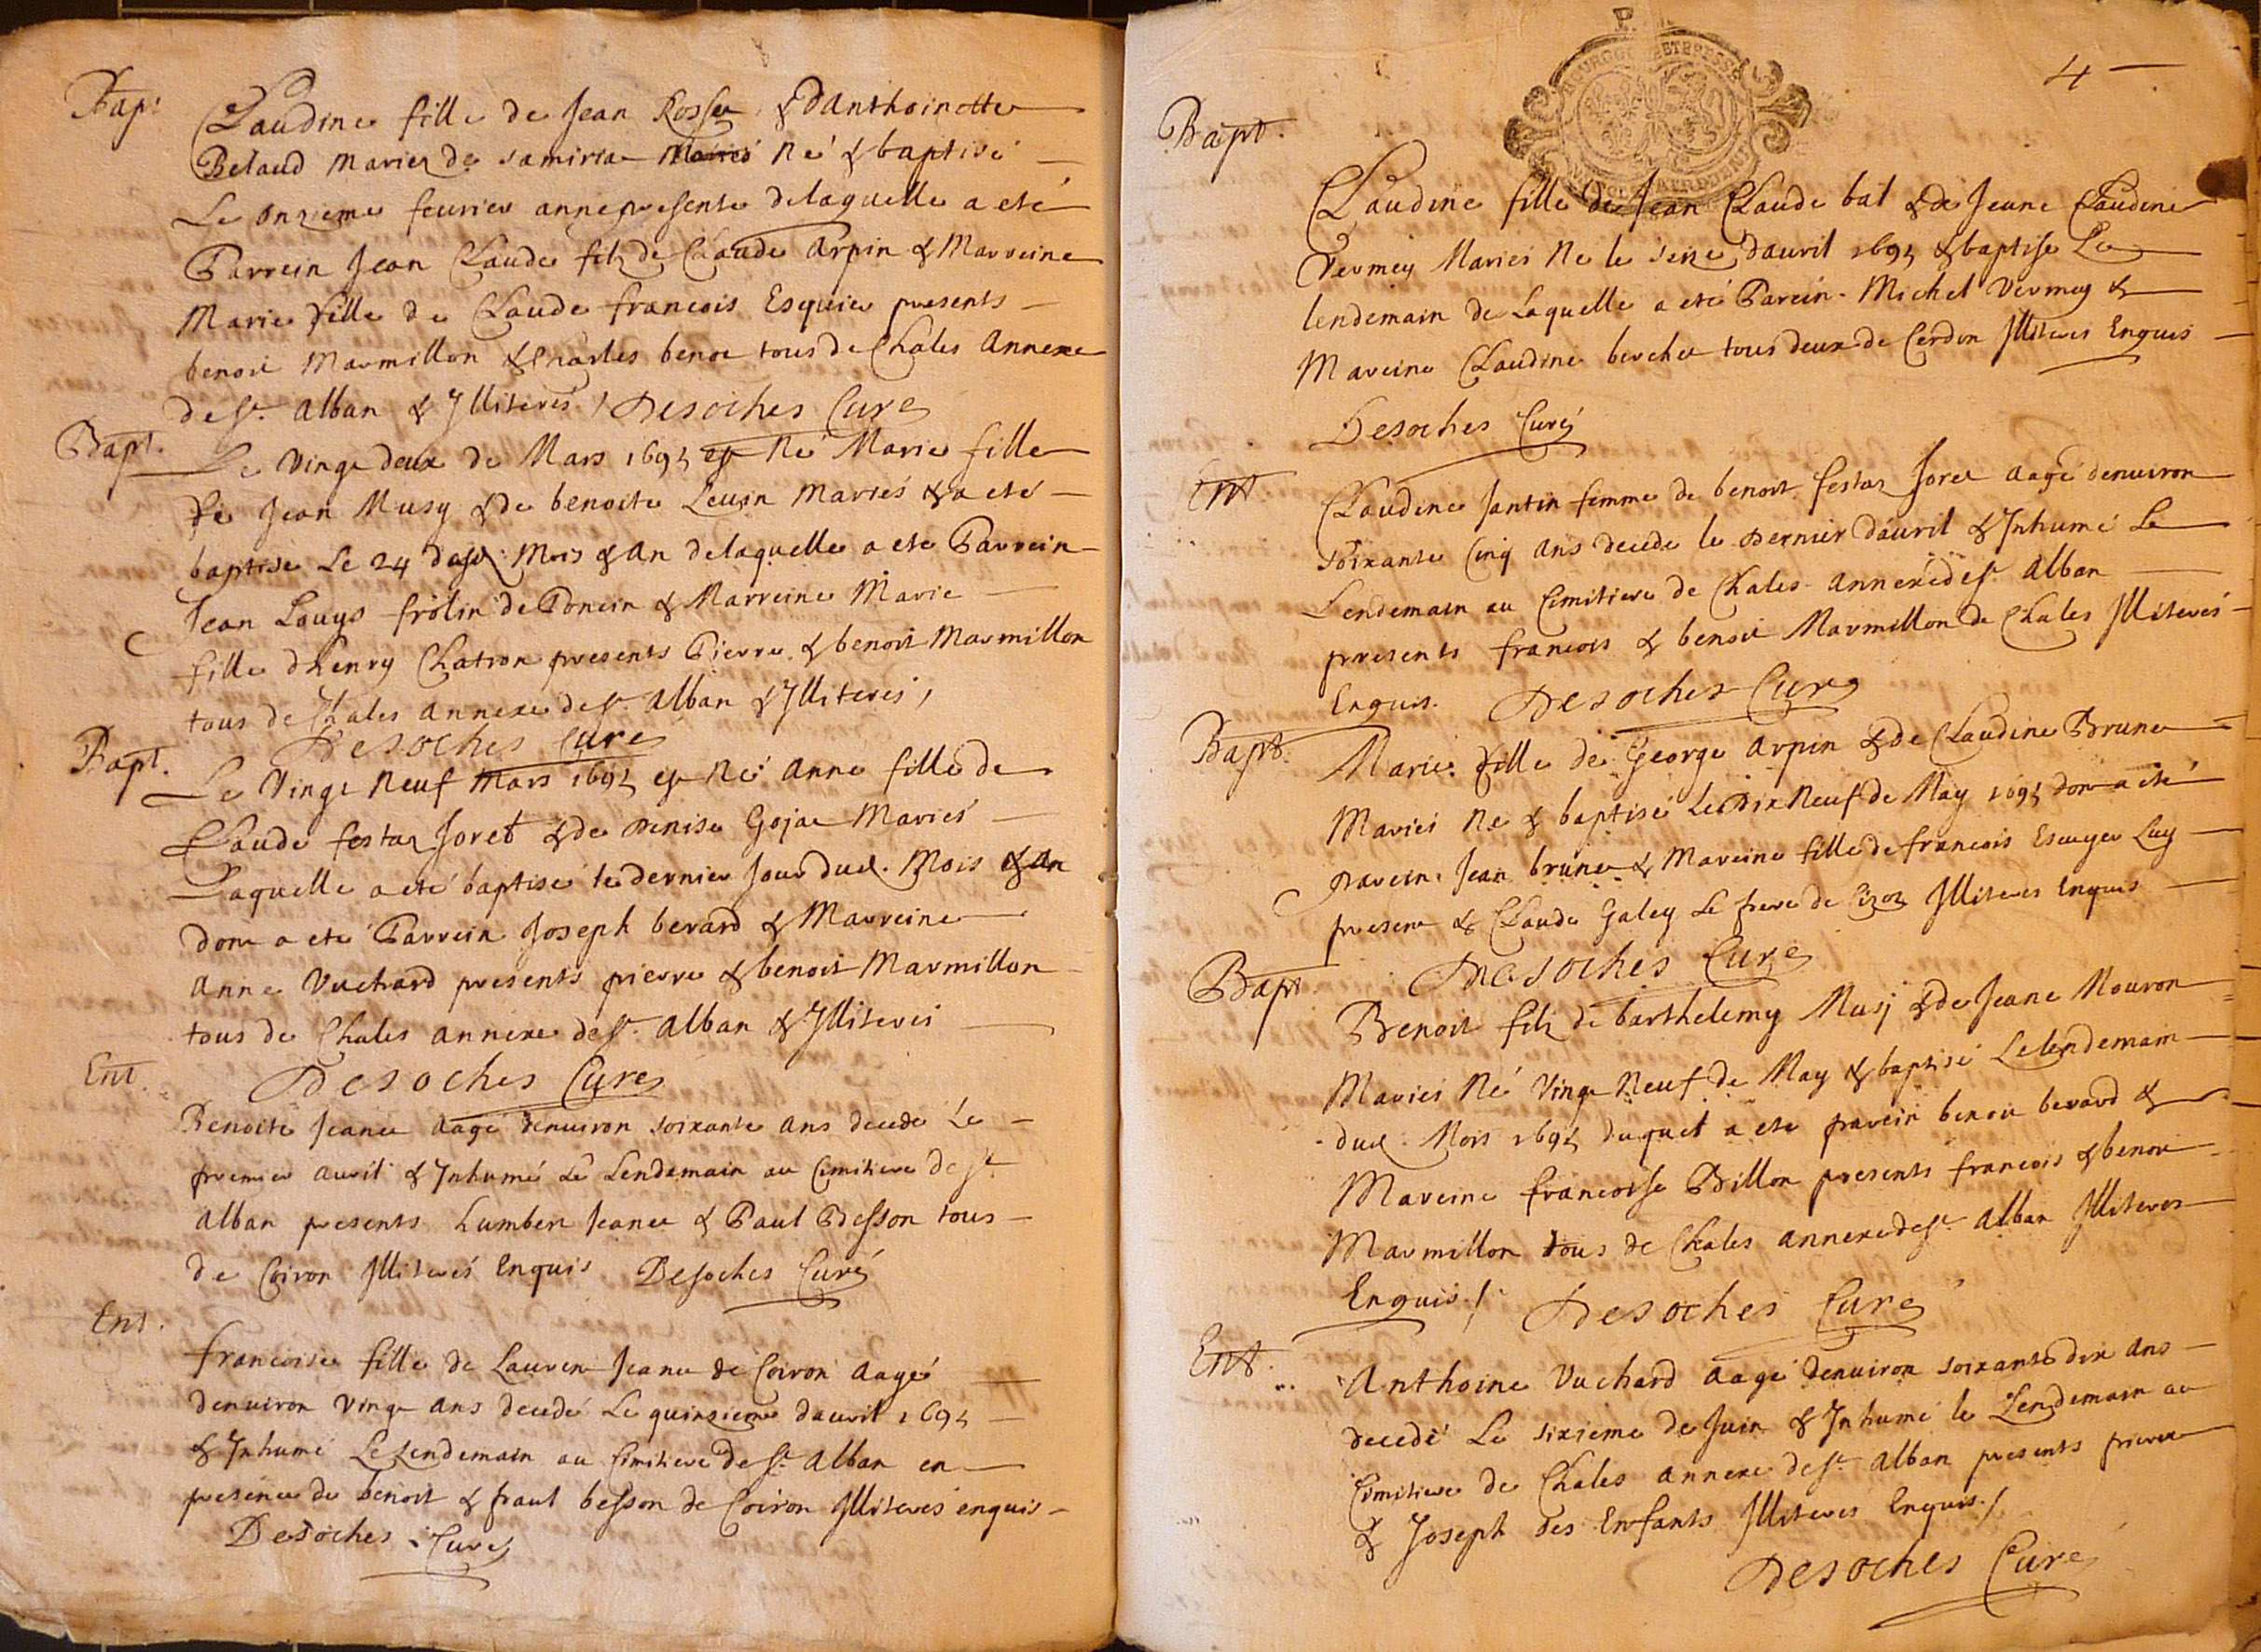 Bap:
Claudine fille de Jean Rosset & dAnthoinette
Belaud Mariez de samiria Mariés Né & baptisé
Le onzieme feurier annepresente delaquelle a eté
Parrein Jean Claude filz de Claude Arpin & Marreine
Marie fille de Claude francois Esquie presents
benoit Marmillon & Charles benoe tous de Chales Annexe
de St. alban & Jlliterés / Desoches Curé
Bapt.
Le Vingt deux de Mars 1695 est Né Marie fille
de Jean Musy & de benoite Leuin Mariés & a eté
baptise Le 24 dusd. Mois & An delaquelle a ete Parrein
Jean Louys frolin de Poncin & Marreine Marie
fille dhenry Chatron presents Pierre & benoit Marmillon
tous de Chales annexe de St. alban & Jlliterés,
Desoches Curé
Bapt.
Le Vingt Neuf Mars 1695 est Né anne fille de
Claude festaz Joret & de Denise Gojae Mariés
Laquelle a eté baptisé le dernier Jour dud. Mois & an
dont a eté Parrein Joseph berard & Marreine
anne Vuchard presents pierre & benoit Marmillon
tous de Chales annexe de St. alban & Jlliterés
Desoches Curé
Ent.
Benoite Jeanet aagé denuiron soixante ans decede Le
premier auril & Inhumé Le Lendemain au Cimitiere de St
alban presents humbert Jeanet & Paul Besson tous
de Coiron Jlliterés Enquis Desoches Curé
Ent.
francoise fille de Laurent Jeanet de Coiron aagé
denuiron Vingt ans decedé Le quinzieme dauril 1695
& Inhumé Le Lendemain au Cimitiere de St. alban en
presence de benoit & paul besson de Coiron Jlliterés enquis
Desoches Curé
4
Bapt.
Claudine fille de Jean Claude bal & de Jeane Claudine
Vermey Mariés Ne le seize dauril 1695 & baptise Le
lendemain de Laquelle a eté Parein Michel Vermey &
Mareine Claudine berchet tous deux de Cerdon Jlliteres Enquis
Desoches Curé
Ent
Claudine Jantin femme de benoit festaz Joret aagé denuiron
soixante Cinq ans decede le Dernier dauril & Inhumé Le
Lendemain au Cimitiere de Chales annexe de St. alban
presents francois & benoit Marmillon de Chales Jlliterés
Enquis. Desoches Curé
Bapt.
Marie fille de George arpin & de Claudine Brunet
Mariés Né & baptisé Le Dix Neuf de May 1695 dont a eté
parein Jean brunet & Mareine fille de francois Escuyer Luy
present & Claude Galey Le frere de Cizoz Jlliteres Enquis
Desoches Curé
Bapt
Benoit filz de barthelemy Musj & de Jeane Mouron
Mariés Né Vingt Neuf de May & baptisé Le lendemain
dud. Mois 1695 duquel a ete parein benoit berard &
Mareine francoise Billon presents francois & benoit
Marmillon tous de Chales annexe de St. alban Jlliteres
Enquis./. Desoches Curé
Ent.
Anthoine Vuchard aagé denuiron soixante dix ans
decedé Le sixieme de Juin & Inhumé le Lendemain au
Cimitiere de Chales annexe de St. alban presents pierre
& Joseph des Enfants Jlliteres Enquis./
Desoches Curé